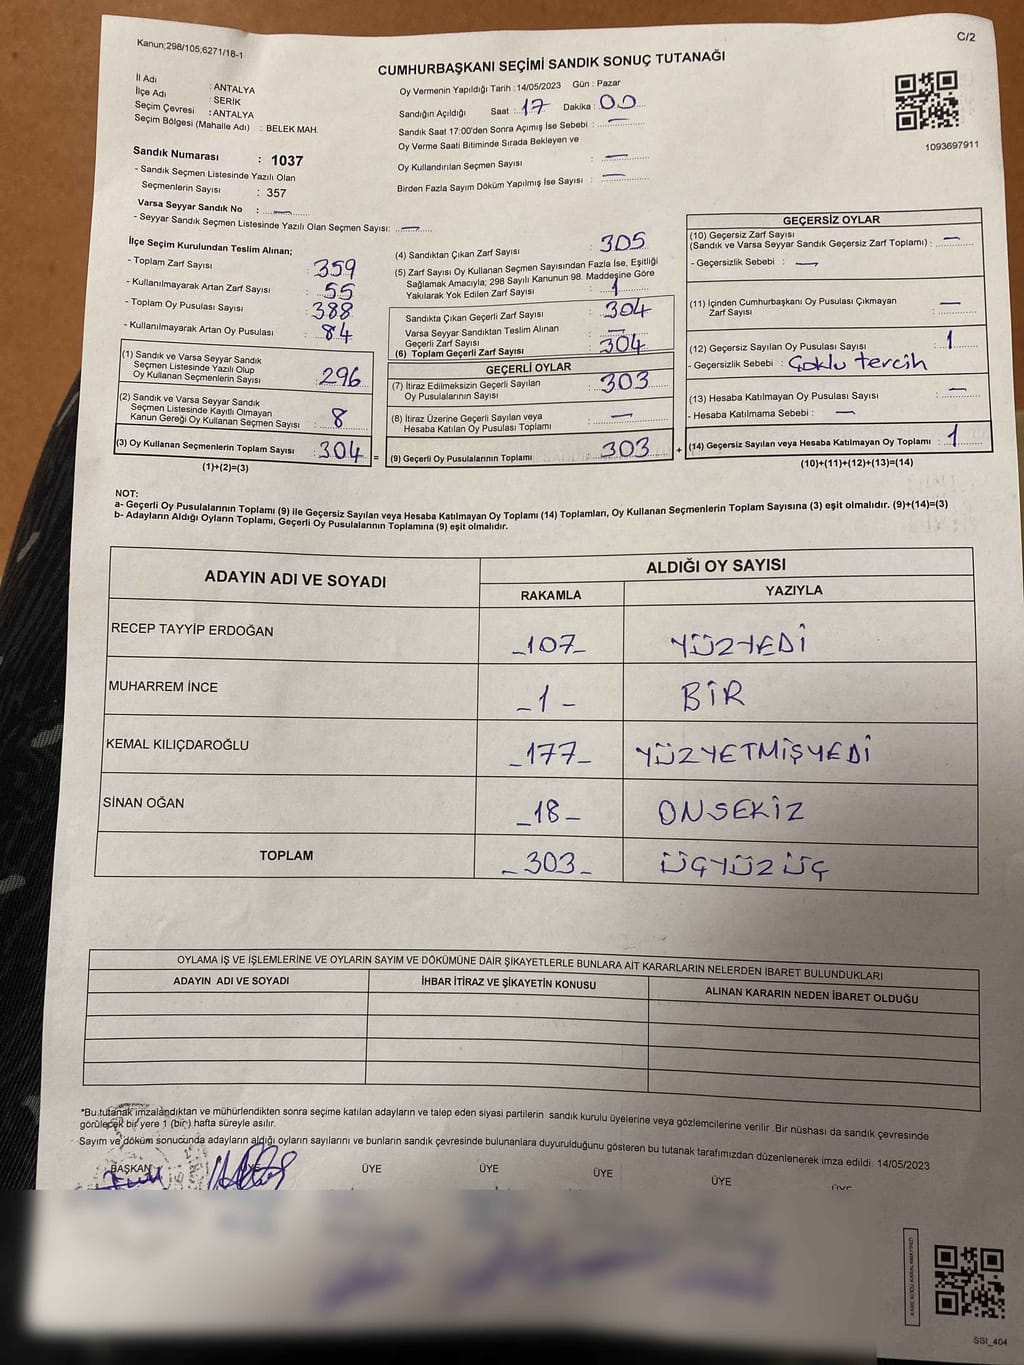 Kanun;298/105;6271/18-1
C/2
CUMHURBAŞKANI SEÇİMİ SANDIK SONUÇ TUTANAĞI
İl Adı : ANTALYA
İlçe Adı : SERİK
Seçim Çevresi : ANTALYA
Seçim Bölgesi (Mahalle Adı) : BELEK MAH.
Oy Vermenin Yapıldığı Tarih : 14/05/2023 Gün : Pazar
Sandığın Açıldığı Saat : 17 Dakika : 00
Sandık Saat 17:00'den Sonra Açımış İse Sebebi : —
Oy Verme Saati Bitiminde Sırada Bekleyen ve
Oy Kullandırılan Seçmen Sayısı : —
Birden Fazla Sayım Döküm Yapılmış İse Sayısı : —
1093697911
Sandık Numarası : 1037
- Sandık Seçmen Listesinde Yazılı Olan
Seçmenlerin Sayısı : 357
Varsa Seyyar Sandık No : —
- Seyyar Sandık Seçmen Listesinde Yazılı Olan Seçmen Sayısı: —
İlçe Seçim Kurulundan Teslim Alınan;
- Toplam Zarf Sayısı : 359
- Kullanılmayarak Artan Zarf Sayısı : 55
- Toplam Oy Pusulası Sayısı : 388
- Kullanılmayarak Artan Oy Pusulası : 84
(1) Sandık ve Varsa Seyyar Sandık
Seçmen Listesinde Yazılı Olup
Oy Kullanan Seçmenlerin Sayısı : 296
(2) Sandık ve Varsa Seyyar Sandık
Seçmen Listesinde Kayıtlı Olmayan
Kanun Gereği Oy Kullanan Seçmen Sayısı : 8
(3) Oy Kullanan Seçmenlerin Toplam Sayısı : 304
(1)+(2)=(3)
(4) Sandıktan Çıkan Zarf Sayısı : 305
(5) Zarf Sayısı Oy Kullanan Seçmen Sayısından Fazla İse, Eşitliği
Sağlamak Amacıyla; 298 Sayılı Kanunun 98. Maddesine Göre
Yakılarak Yok Edilen Zarf Sayısı : 1
Sandıkta Çıkan Geçerli Zarf Sayısı : 304
Varsa Seyyar Sandıktan Teslim Alınan
Geçerli Zarf Sayısı : —
(6) Toplam Geçerli Zarf Sayısı : 304
GEÇERLİ OYLAR
(7) İtiraz Edilmeksizin Geçerli Sayılan
Oy Pusulasının Sayısı : 303
(8) İtiraz Üzerine Geçerli Sayılan veya
Hesaba Katılan Oy Pusulası Toplamı : —
= (9) Geçerli Oy Pusulalarının Toplamı 303
GEÇERSİZ OYLAR
(10) Geçersiz Zarf Sayısı
(Sandık ve Varsa Seyyar Sandık Geçersiz Zarf Toplamı) : —
- Geçersizlik Sebebi : —
(11) İçinden Cumhurbaşkanı Oy Pusulası Çıkmayan
Zarf Sayısı : —
(12) Geçersiz Sayılan Oy Pusulası Sayısı : 1
- Geçersizlik Sebebi : Çoklu tercih
(13) Hesaba Katılmayan Oy Pusulası Sayısı : —
- Hesaba Katılmama Sebebi : —
+ (14) Geçersiz Sayılan veya Hesaba Katılmayan Oy Toplamı : 1
(10)+(11)+(12)+(13)=(14)
NOT:
a- Geçerli Oy Pusulalarının Toplamı (9) ile Geçersiz Sayılan veya Hesaba Katılmayan Oy Toplamı (14) Toplamları, Oy Kullanan Seçmenlerin Toplam Sayısına (3) eşit olmalıdır. (9)+(14)=(3)
b- Adayların Aldığı Oyların Toplamı, Geçerli Oy Pusulalarının Toplamına (9) eşit olmalıdır.
ADAYIN ADI VE SOYADI
ALDIĞI OY SAYISI
RAKAMLA YAZIYLA
RECEP TAYYİP ERDOĞAN _107_ YÜZYEDİ
MUHARREM İNCE _1_ BİR
KEMAL KILIÇDAROĞLU _177_ YÜZYETMİŞYEDİ
SİNAN OĞAN _18_ ONSEKİZ
TOPLAM _303_ ÜÇYÜZÜÇ
OYLAMA İŞ VE İŞLEMLERİNE VE OYLARIN SAYIM VE DÖKÜMÜNE DAİR ŞİKAYETLERLE BUNLARA AİT KARARLARIN NELERDEN İBARET BULUNDUKLARI
ADAYIN ADI VE SOYADI İHBAR İTİRAZ VE ŞİKAYETİN KONUSU ALINAN KARARIN NEDEN İBARET OLDUĞU
*Bu tutanak imzalandıktan ve mühürlendikten sonra seçime katılan adayların ve talep eden siyasi partilerin sandık kurulu üyelerine veya gözlemcilerine verilir .Bir nüshası da sandık çevresinde
görülecek bir yere 1 (bir) hafta süreyle asılır.
Sayım ve döküm sonucunda adayların aldığı oyların sayılarını ve bunların sandık çevresinde bulunanlara duyurulduğunu gösteren bu tutanak tarafımızdan düzenlenerek imza edildi. 14/05/2023
BAŞKAN ÜYE ÜYE ÜYE ÜYE ÜYE ÜYE
SSI_404